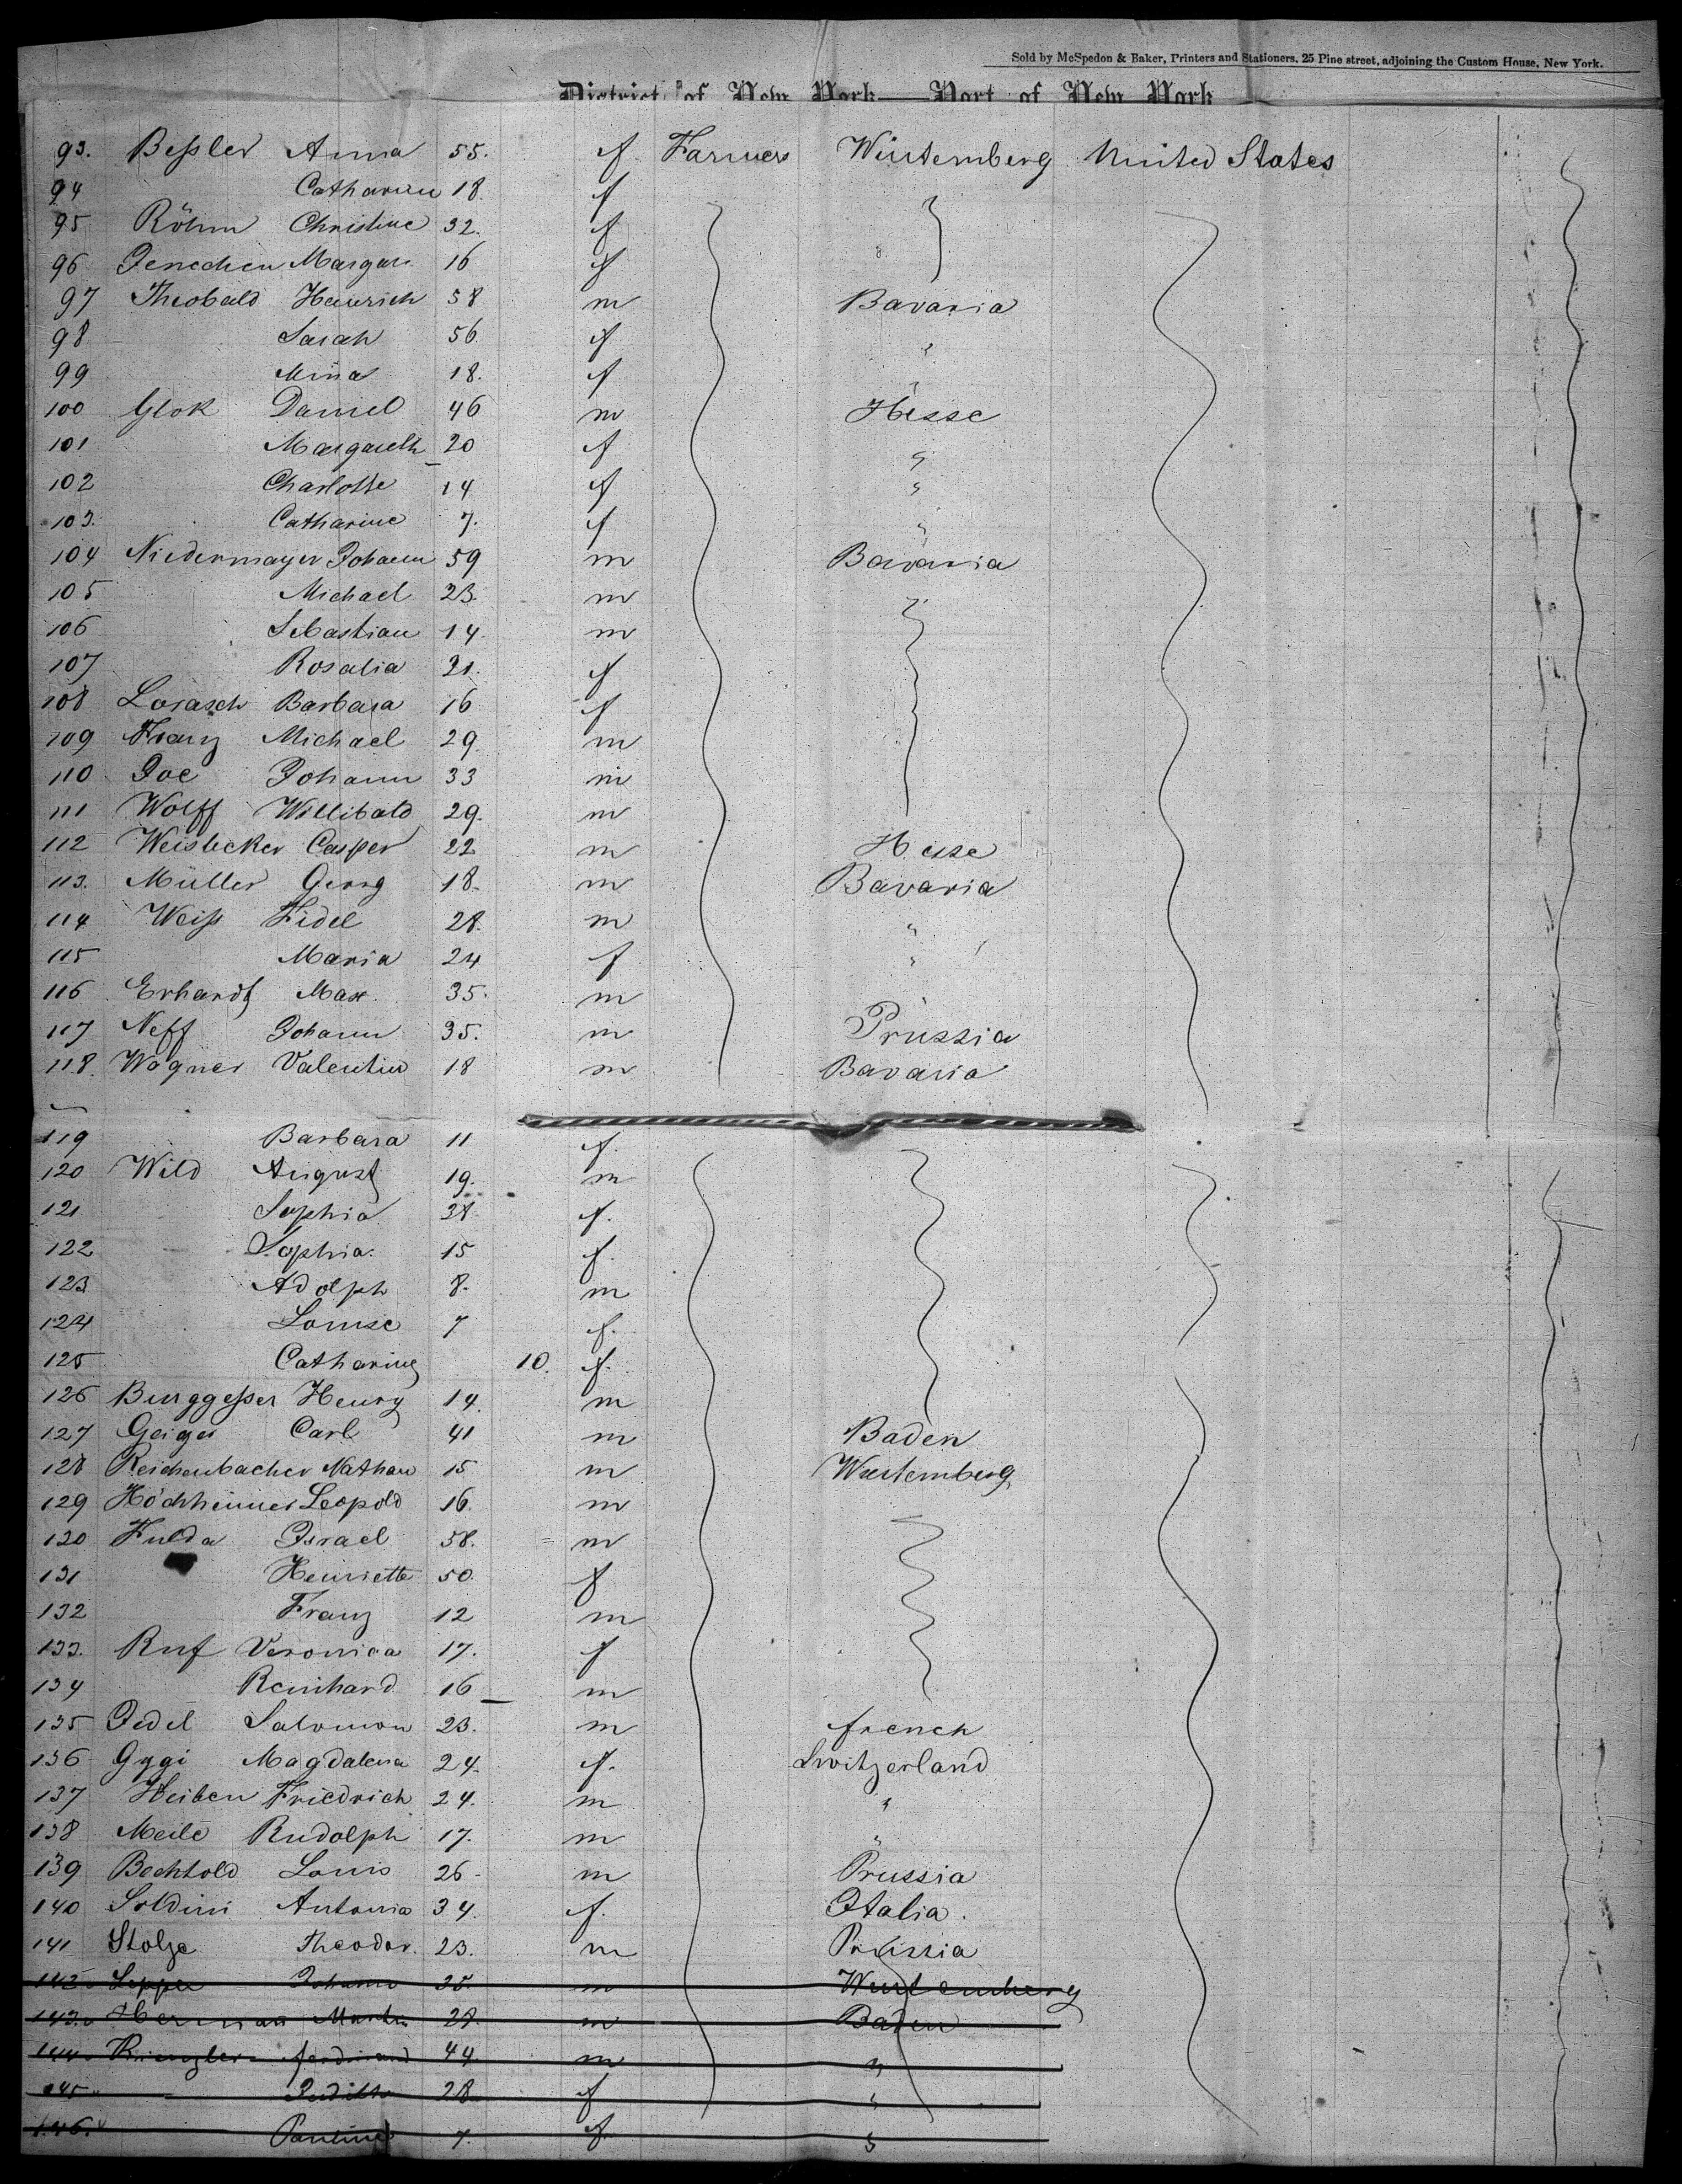 Sold by McSpedon & Baker, Printers and Stationers, 25 Pine street, adjoining the Custom House, New York.
District of New York — Port of New York
93. Beßler Anna 55. f. Farmers Würtemberg United States
94 Catharine 18. f
95 Röhm Christine 32. f
96 Margar. 16 f
97 Theobald Heinrich 58 m Bavaria
98 Sarah 56 f "
99 Mina 18. f "
100 Glok Daniel 46 m Hesse
101 Margareth 20 f "
102 Charlotte 14 f "
103. Catharine 7. f "
104 Niedermayer Johann 59 m Bavaria
105 Michael 23. m
106 Sebastian 14. m
107 Rosalia 21. f
108 Lorasch Barbara 16 f
109 Franz Michael 29 m
110 Joe Johann 33 m
111 Wolff Willibald 29. m
112 Weisbecker Casper 22 m Hesse
113. Müller Georg 18. m Bavaria
114 Weiß Fidel 28. m "
115 Maria 24 f "
116 Erhardt Max. 35. m "
117 Neff Johann 35. m Prussia
118. Wagner Valentin 18 m Bavaria
119 Barbara 11 f.
120 Wild August 19. m
121 Sophia 38 f.
122 Sophia. 15 f.
123 Adolph 8. m
124 Louise 7 f.
125 Catharine 10. f.
126 Burggeßer Henry 14. m
127 Geiger Carl 41 m Baden
128 Reichenbacher Nathan 15 m Wurtemberg
129 Höchheimer Leopold 16. m
130 Fulda Israel 58. m
131 Henriette 50. f
132 Franz 12 m
133. Ruf Veronica 17. f
134 Reinhard 16 m
135 Jedel Salomon 23. m french
136 Gygi Magdalena 24. f. Switzerland
137 Heiben Friedrich 24. m "
138 Meile Rudolph 17. m "
139 Bechtold Louis 26 m Prussia
140 Soldini Antonia 34. f. Italia.
141 Stolze Theodor. 23. m Prussia
142 Johann 25. m Wurtemberg
143. Herman Martin 28. m Baden
144 Ferdinand 44 m "
145 Judith 28 f "
146. Pauline 7. f. "